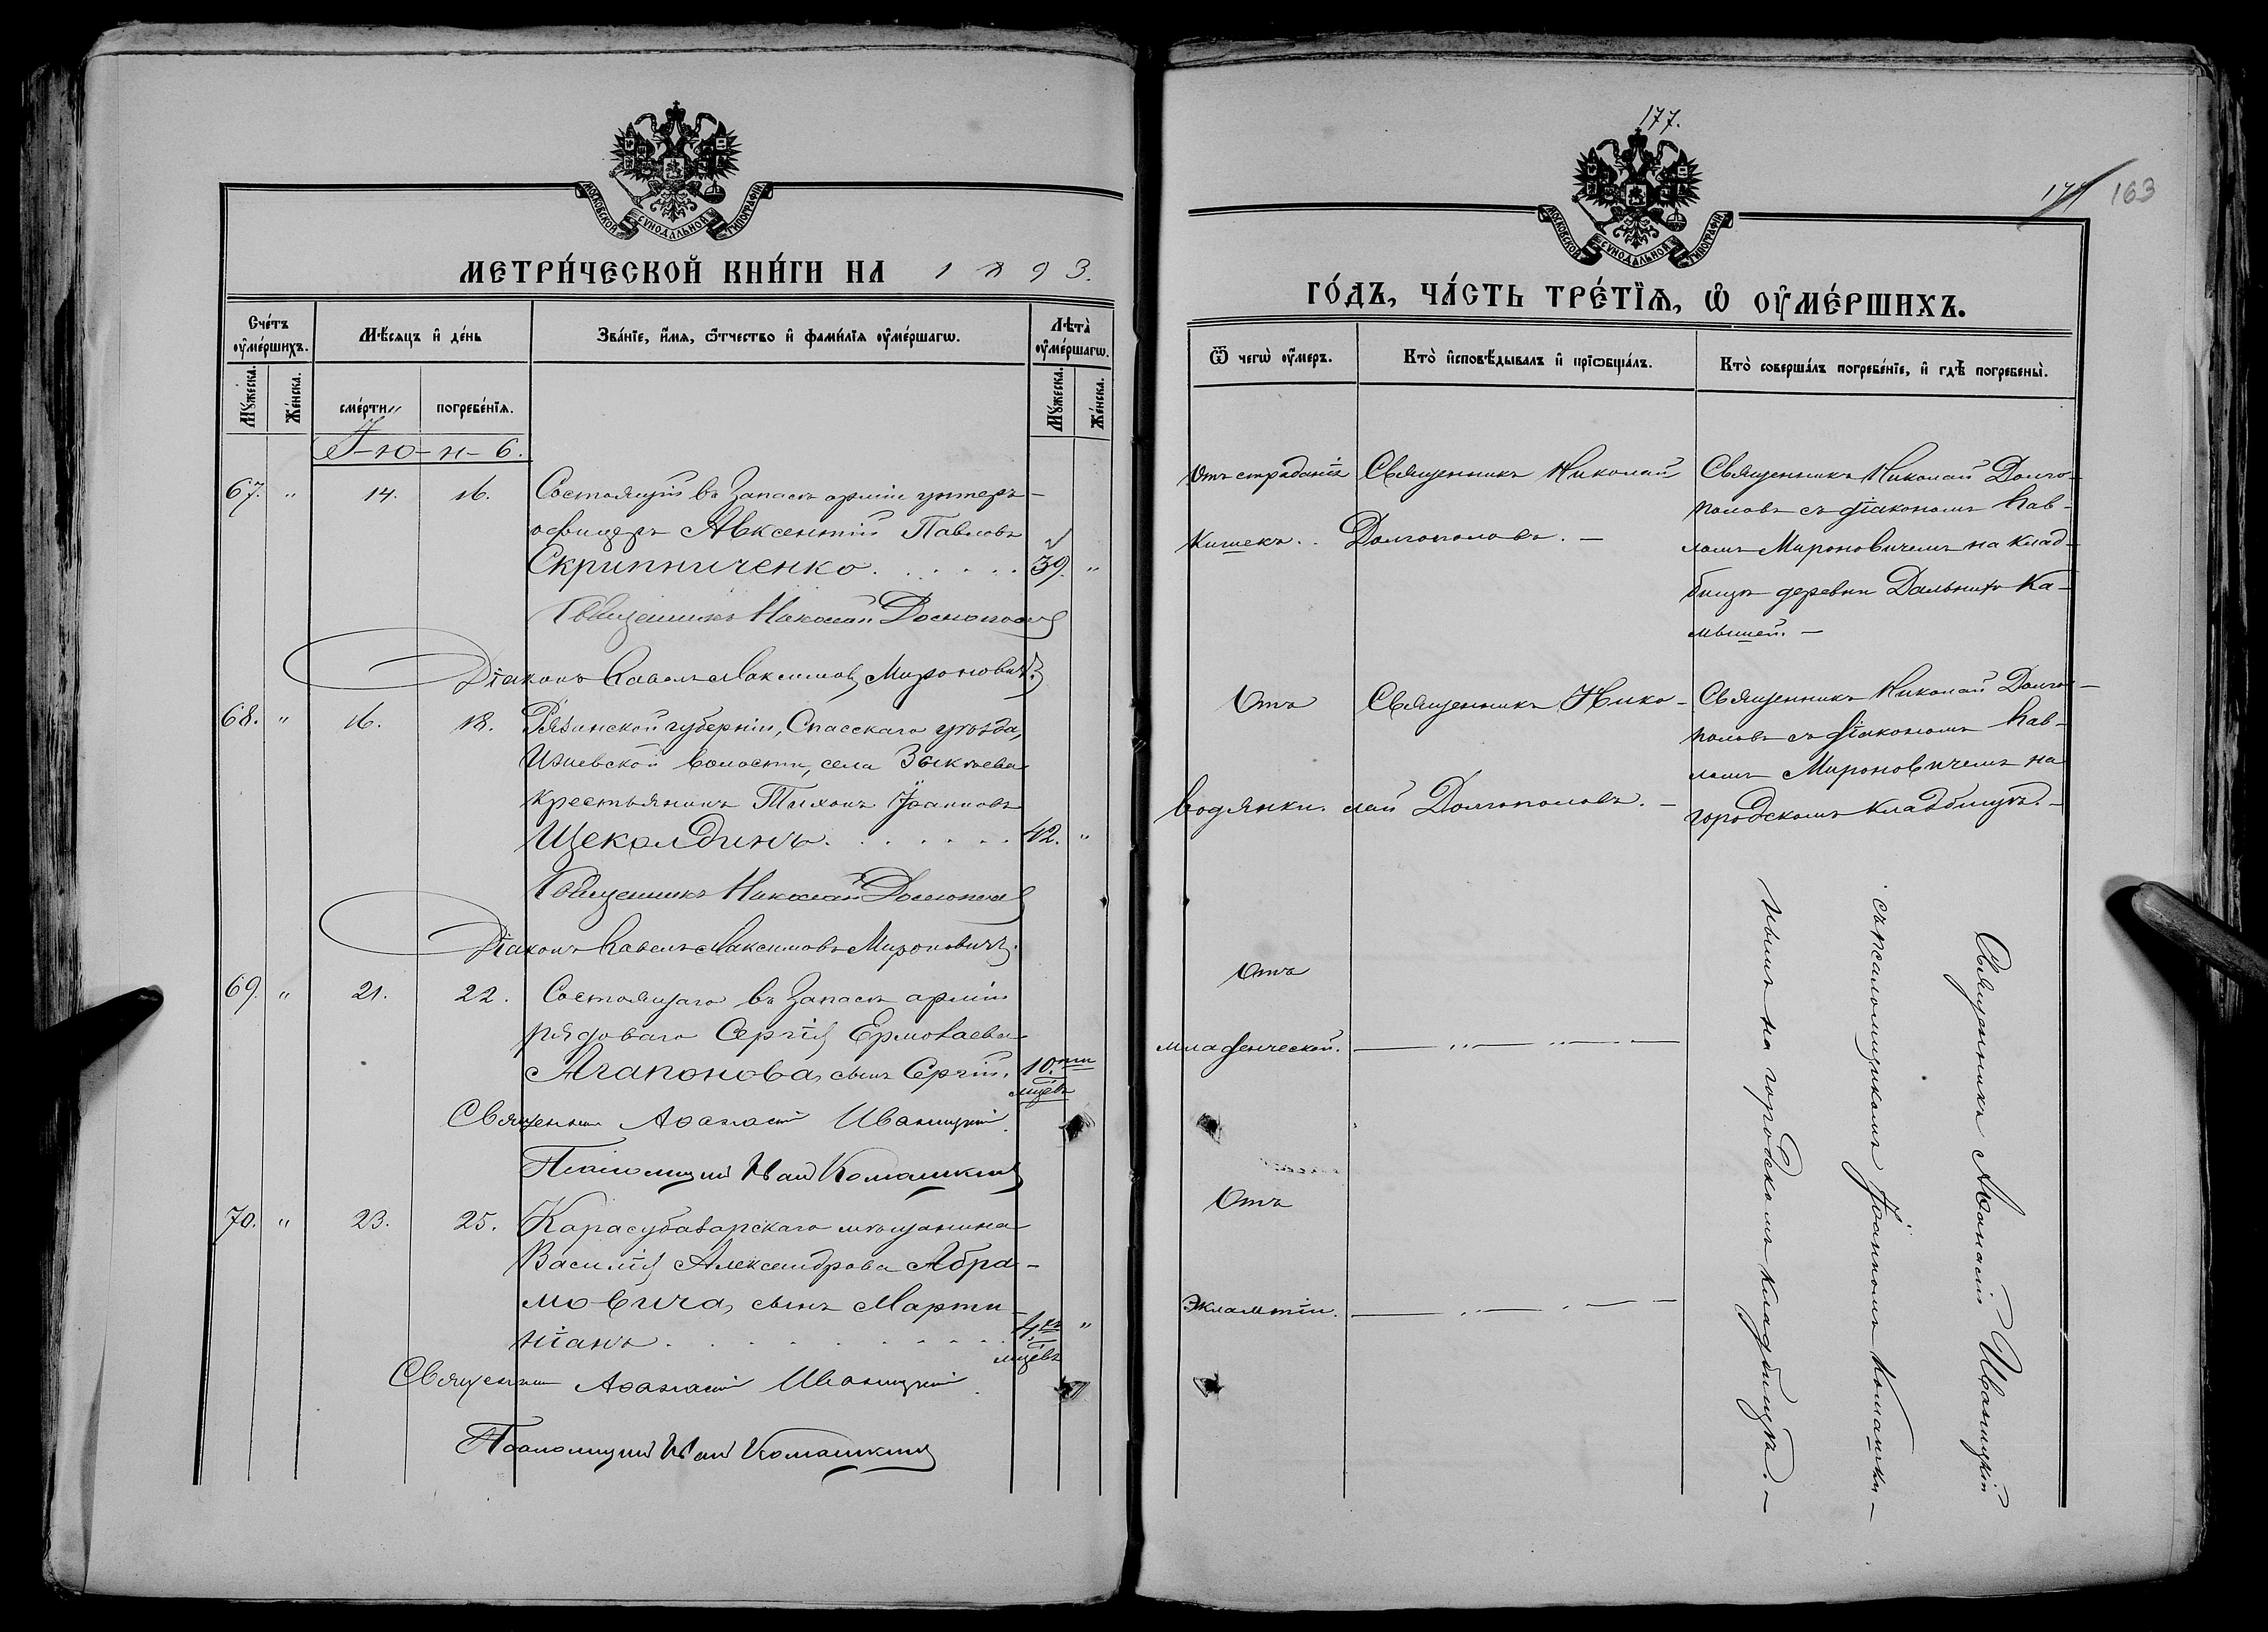 МОСКОВСКОЙ СѴНОДАЛЬНОЙ ТИПОГРАФІИ
МЕТРИ́ЧЕСКОЙ КНИ́ГИ НА 1893.
Сче́тъ ᲂу҆ме́ршихъ.
Мѣ́сяцъ и҆ де́нь
Зва́нїе, и҆́мѧ, ѻ҆́тчество и҆ фами́лїѧ ᲂу҆ме́ршагѡ.
Лѣта̀ ᲂу҆ме́ршагѡ.
Мꙋ́жеска.
Же́нска.
сме́рти
погребе́нїѧ.
Мꙋ́жеска.
Же́нска.
І-ю-н-ь.
67. " 14. 16. Состоящій въ запасѣ арміи унтеръ-
офицеръ Авксентій Павловъ
Скрипниченко. . . . . . 39. "
Священникъ Николай Долгополов
Діаконъ Павелъ Максимовъ Мироновичъ.
68. " 16. 18. Рязанской губерніи, Спасскаго уѣзда,
Ижевской волости, села Зыкѣева
крестьянинъ Тихонъ Іоанновъ
Щеколдинъ. . . . . . . 42. "
Священникъ Николай Долгополов
Діаконъ Павелъ Максимовъ Мироновичъ.
69. " 21. 22. Состоящаго въ запасѣ арміи
рядоваго Сергія Ермолаева
Агапонова, сынъ Сергій. 10.ти
мцевъ
Священник Аѳанасій Иваницкій.
Псаломщик Иван Комашкин
70. " 23. 25. Карасубазарскаго мѣщанина
Василія Александрова Абра-
мовича, сынъ Марти-
ніанъ. . . . . . . . . 4.хъ "
мцевъ
Священник Аѳанасій Иваницкій.
Псаломщик Иван Комашкин
177.
163
МОСКОВСКОЙ СѴНОДАЛЬНОЙ ТИПОГРАФІИ
ГО́ДЪ, ЧА́СТЬ ТРЕ́ТЇѦ, Ѡ҆ ОУ҆МЕ́РШИХЪ.
Ѿ чегѡ̀ ᲂу҆́меръ.
Кто̀ и҆сповѣ́дывалъ и҆ прїѡбща́лъ.
Кто̀ соверша́лъ погребе́нїе, и҆ гдѣ̀ погребены̀.
Отъ страданія
кишекъ.
Священникъ Николай
Долгополовъ. —
Священникъ Николай Долго-
половъ съ діакономъ Пав-
ломъ Мироновичемъ на клад-
бищѣ деревни Дальнихъ Ка-
мышей. —
Отъ
водянки.
Священникъ Нико-
лай Долгополовъ. —
Священникъ Николай Долго-
половъ съ діакономъ Пав-
ломъ Мироновичемъ на
городскомъ кладбищѣ. —
Отъ
младенческой. — " — " —
Отъ
Экламтіи. — " — " —
Священникъ Аѳанасій Иваницкій
съ псаломщикомъ Іоанномъ Комашки-
нымъ на городскомъ кладбищѣ. —